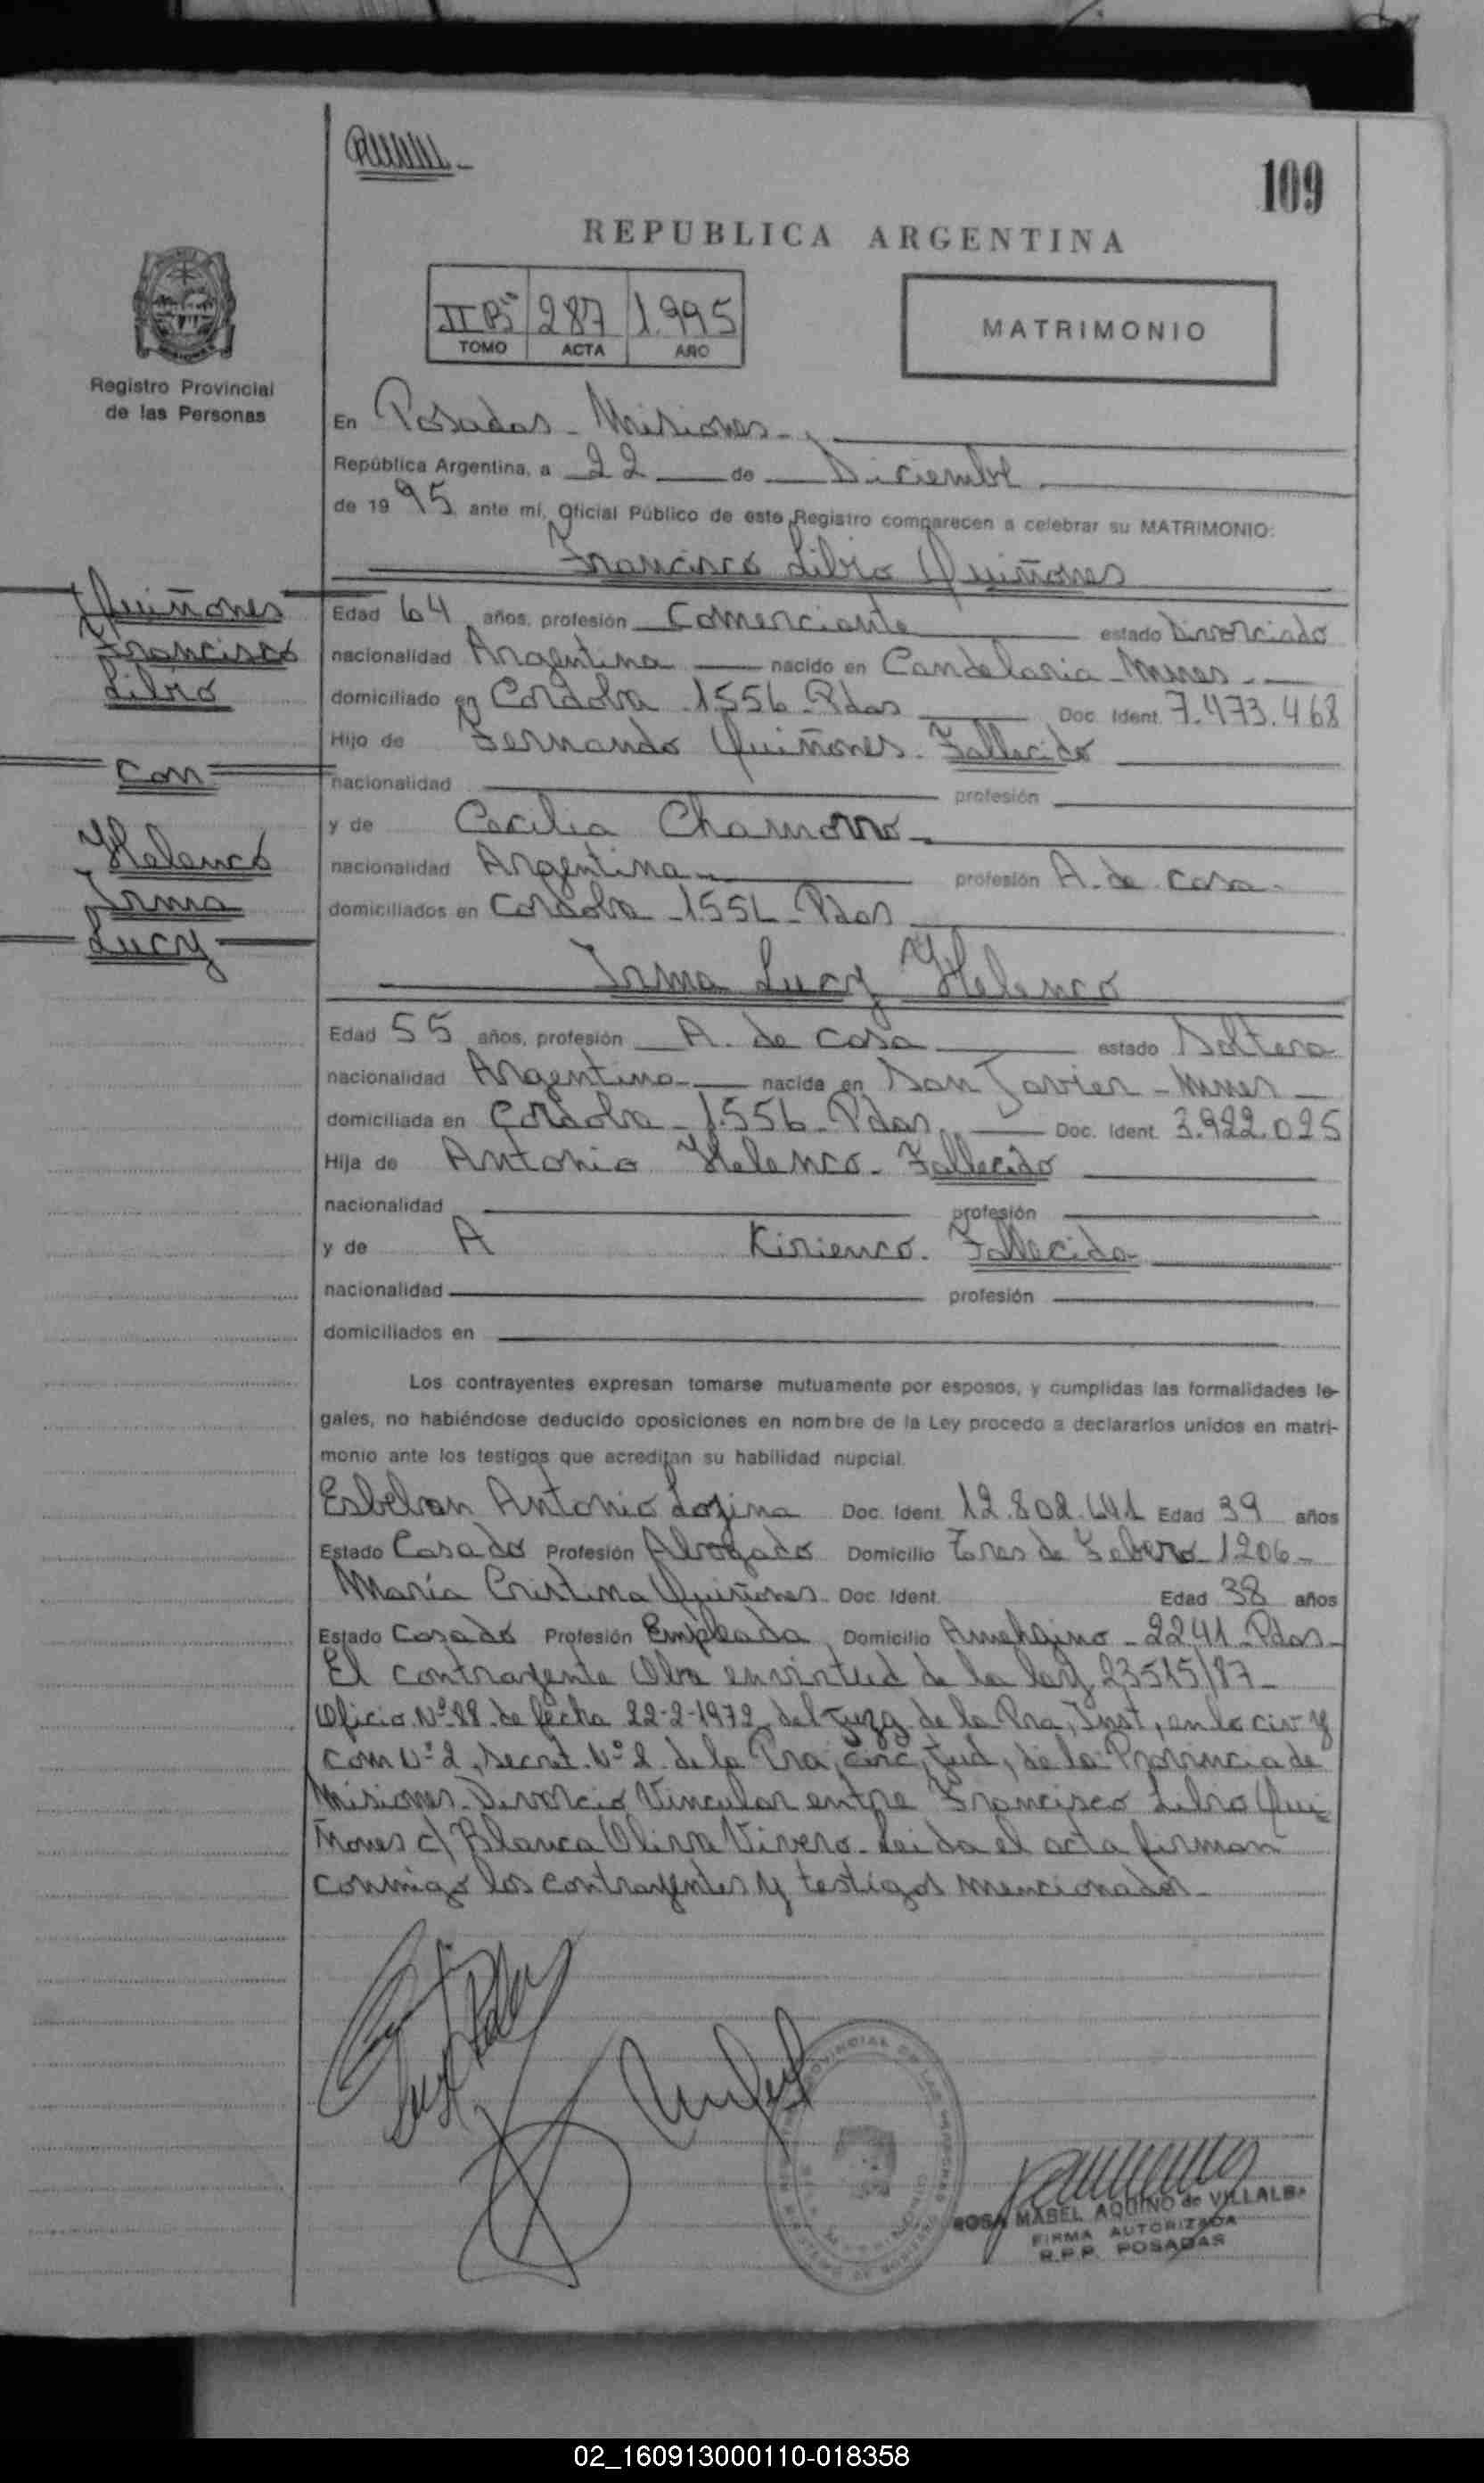 109
REPUBLICA ARGENTINA
II Bis 287 1.995
TOMO ACTA AÑO
MATRIMONIO
Registro Provincial
de las Personas
En Posadas - Misiones -
República Argentina, a 22 de Diciembre
de 1995 ante mí, Oficial Público de este Registro comparecen a celebrar su MATRIMONIO:
Francisco Libio Quiñones
Quiñones
Francisco
Libio
Con
Helenco
Irma
Lucy
Edad 64 años, profesión Comerciante estado Divorciado
nacionalidad Argentina nacido en Candelaria - Mnes -
domiciliado en Cordoba 1556 - Pdas Doc. Ident. 7.473.468
Hijo de Fernando Quiñones - Fallecido
nacionalidad profesión
y de Cecilia Chamorro -
nacionalidad Argentina - profesión A. de casa -
domiciliados en Cordoba - 1556 - Pdas
Irma Lucy Helenco
Edad 55 años, profesión A. de casa estado Soltera
nacionalidad Argentina - nacida en San Javier - Mnes -
domiciliada en Cordoba - 1.556 - Pdas. Doc. Ident. 3.922.025
Hija de Antonio Helenco - Fallecido
nacionalidad profesión
y de A Kirienco. Fallecida
nacionalidad profesión
domiciliados en
Los contrayentes expresan tomarse mutuamente por esposos, y cumplidas las formalidades le-
gales, no habiéndose deducido oposiciones en nombre de la Ley procedo a declararlos unidos en matri-
monio ante los testigos que acreditan su habilidad nupcial.
Antonio Lozina Doc. Ident. 12.802.641 Edad 39 años
Estado Casado Profesión Abogado Domicilio Tres de Febrero 1206 -
María Cristina Quiñones - Doc. Ident. Edad 38 años
Estado Casado Profesión Empleada Domicilio Ameghino - 2241 - Pdas -
El contrayente Obra en virtud de la ley 23515/87 -
Oficio Nº 88 de fecha 22-2-1972 del Juzg de la Pra, Inst, en lo civ y
com Nº 2, Secret. Nº 2 de la Pra, circ, Jud, de la Provincia de
Misiones - Divorcio Vincular entre Francisco Libio Qui
ñones c/ Blanca Olinra Vivero - Leida el acta firman
conmigo los contrayentes y testigos mencionados -
ROSA MABEL AQUINO de VILLALBA
FIRMA AUTORIZADA
R.P.P. POSADAS
02_160913000110-018358